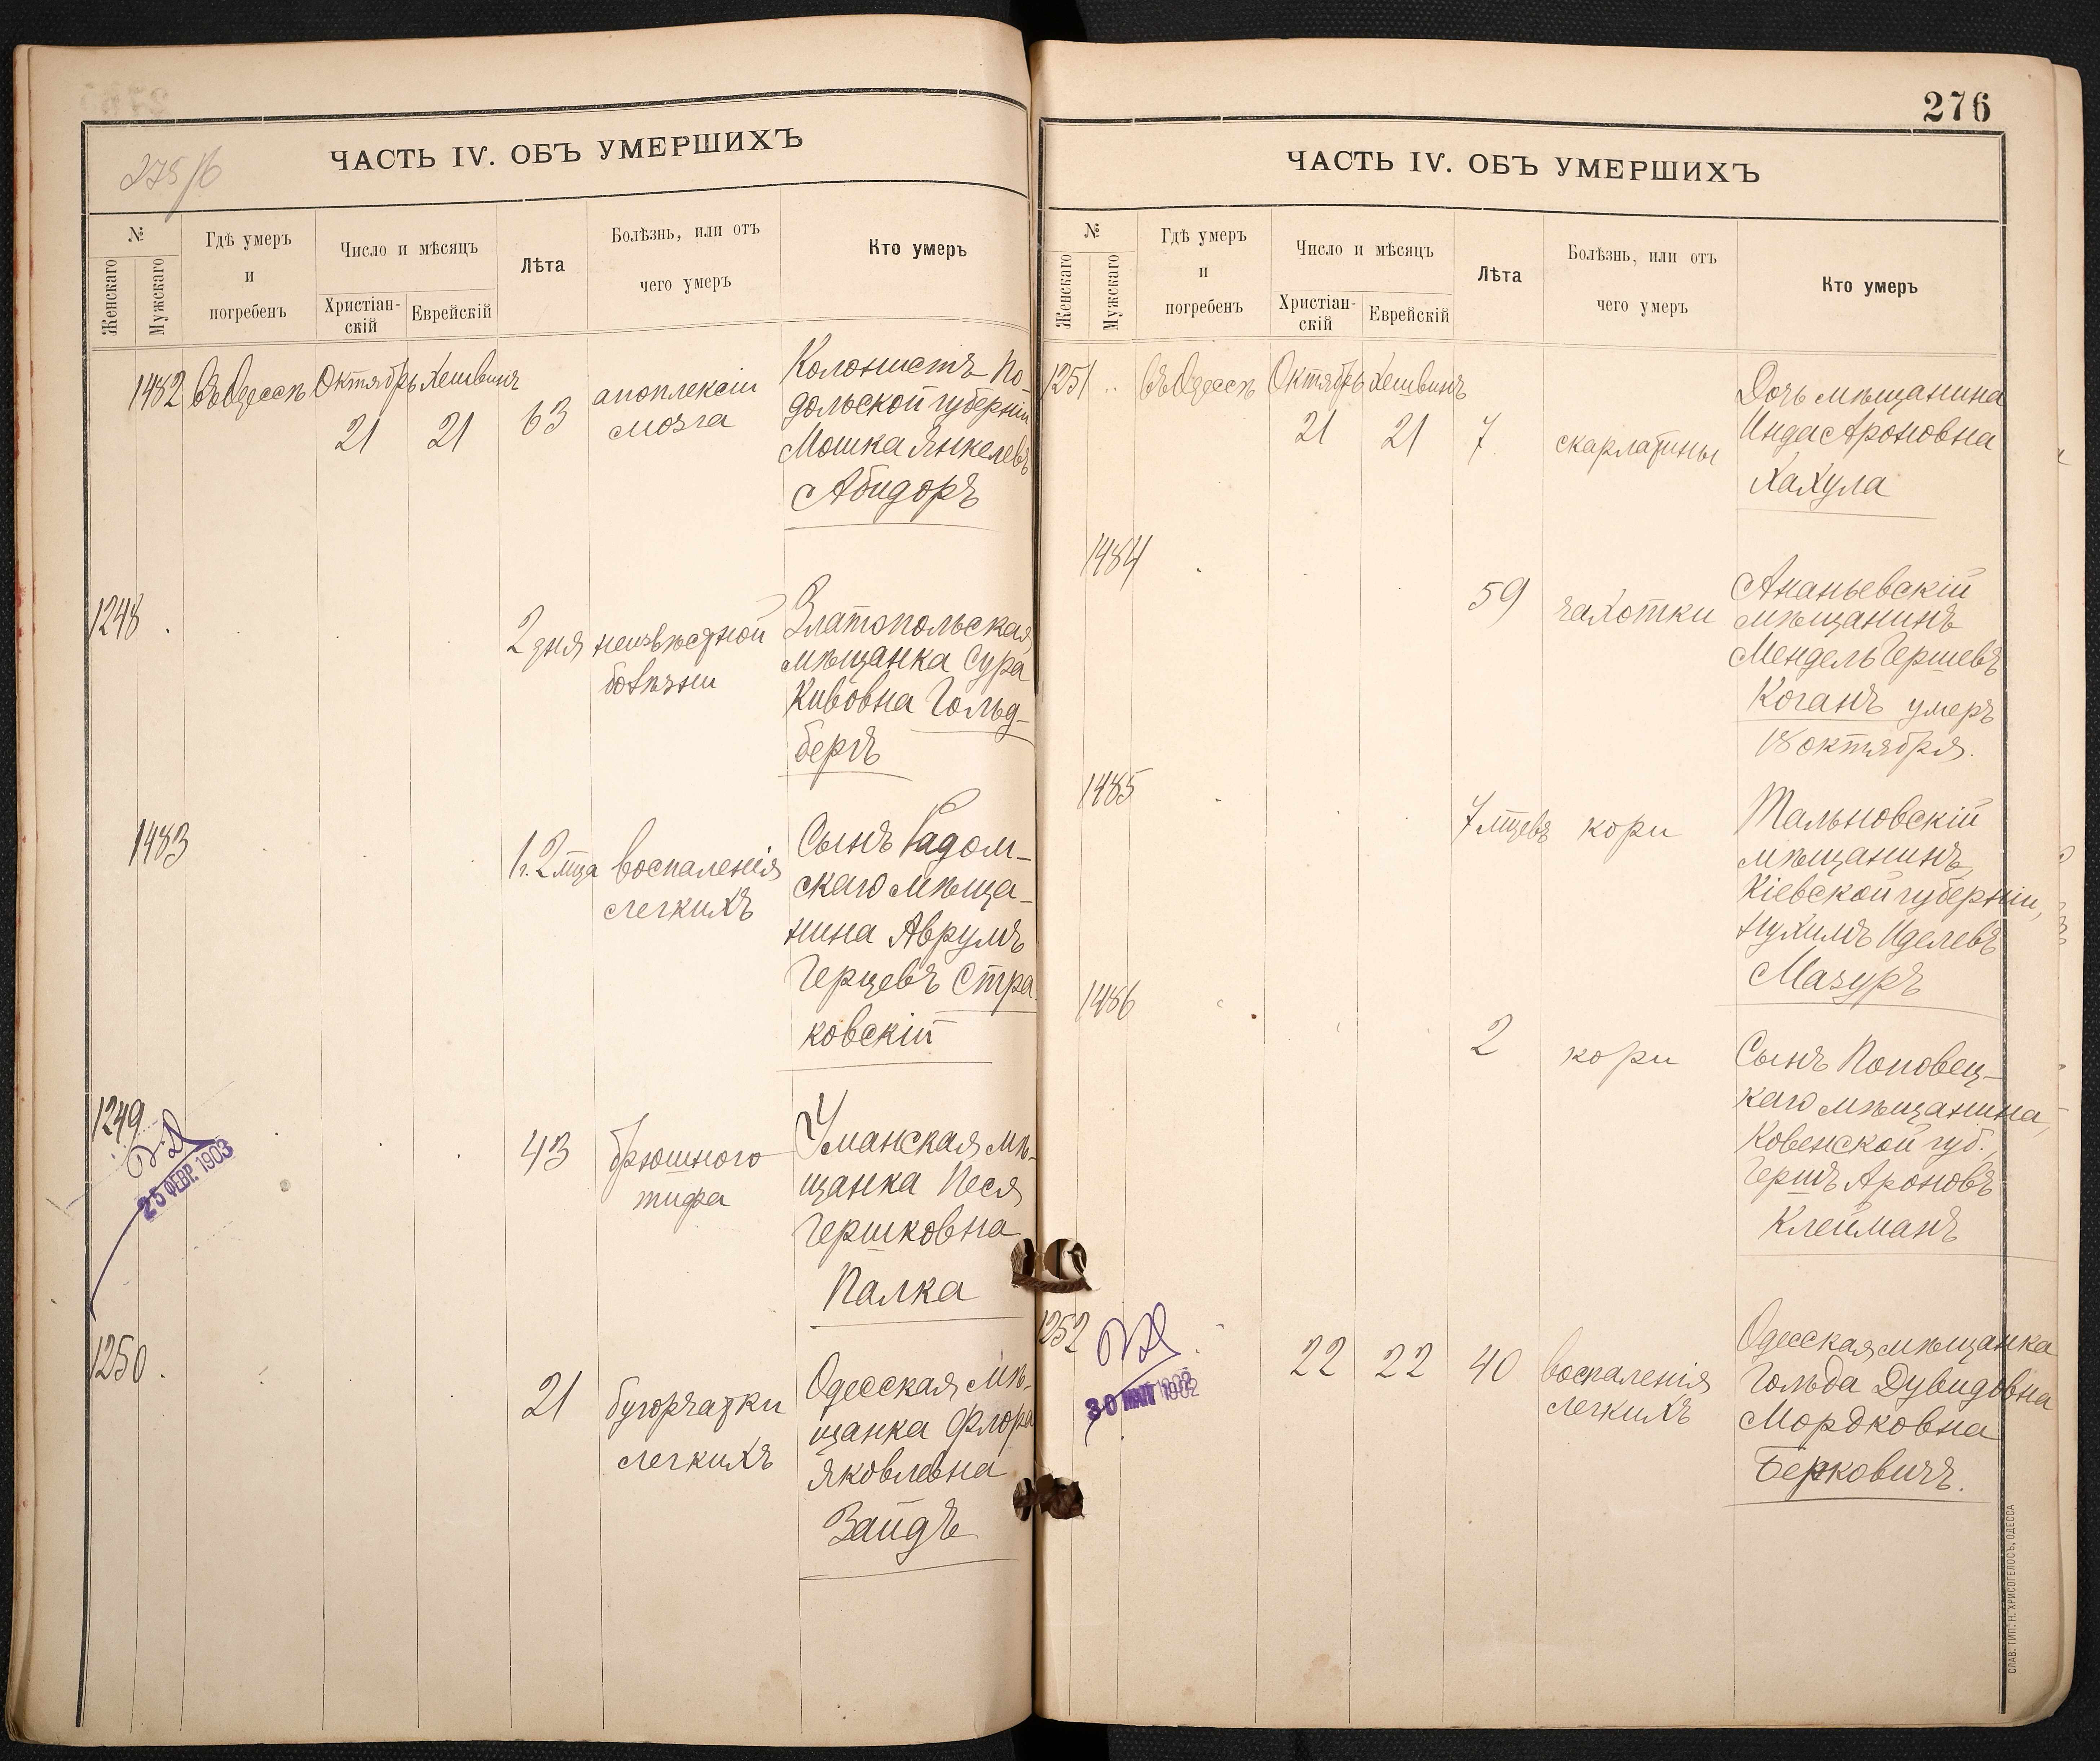 275/б
ЧАСТЬ IV. ОБЪ УМЕРШИХЪ
№
Женскаго
Мужскаго
Гдѣ умеръ
и
погребенъ
Число и мѣсяцъ
Христіан-
скій
Еврейскій
Лѣта
Болѣзнь, или отъ
чего умеръ
Кто умеръ
1482 въ Одессѣ Октябрь Хешвинъ
21 21 63
апоплексіи
мозга
Колонистъ По-
дольской губерніи
Мошка Янкелевъ
Абидоръ
1248
2 дня неизвѣстной
болѣзни
Златопольская
мѣщанка Сура
Кивовна Гольд-
бергъ
1483
1 г. 2 мца воспаленія
легкихъ
Сынъ Радом-
скаго мѣща-
нина Аврумъ
Герцевъ Стра
ковскій
1249
25 ФЕВР. 1903
43 брюшного
тифа
Уманская мѣ-
щанка Песя
Гершковна
Палка
1250
21 бугорчатки
легкихъ
Одесская мѣ-
щанка Флора
Яковлевна
Зайдъ
276
ЧАСТЬ IV. ОБЪ УМЕРШИХЪ
№
Женскаго
Мужскаго
Гдѣ умеръ
и
погребенъ
Число и мѣсяцъ
Христіан-
скій
Еврейскій
Лѣта
Болѣзнь, или отъ
чего умеръ
Кто умеръ
1251 въ Одессѣ Октябрь Хешвинъ
21 21 7 скарлатины
Дочь мѣщанина
Инда Ароновна
Хахула
1484
59 чахотки
Ананьевскій
мѣщанинъ
Мендель Гершевъ
Коганъ умеръ
18 октября.
1485
7 мцевъ кори
Тальновскій
мѣщанинъ,
Кіевской губерніи,
Нухимъ Иделевъ
Мазуръ
1486
2 кори
Сынъ Поповец-
каго мѣщанина,
Ковенской губ.,
Гершъ Ароновъ
Клейманъ
1252
30 МАЙ 1902
22 22 40 воспаленія
легкихъ
Одесская мѣщанка
Гольда Дувидовна
Мордковна
Берковичъ.
СЛАВ. ТИП. Н. ХРИСОГЕЛОСЪ, ОДЕССА